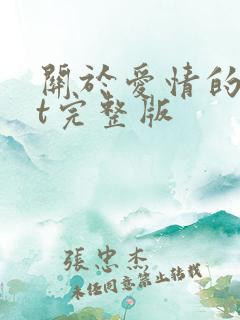 關於愛情的
t完整版
張忠杰
未經同意禁止轉載